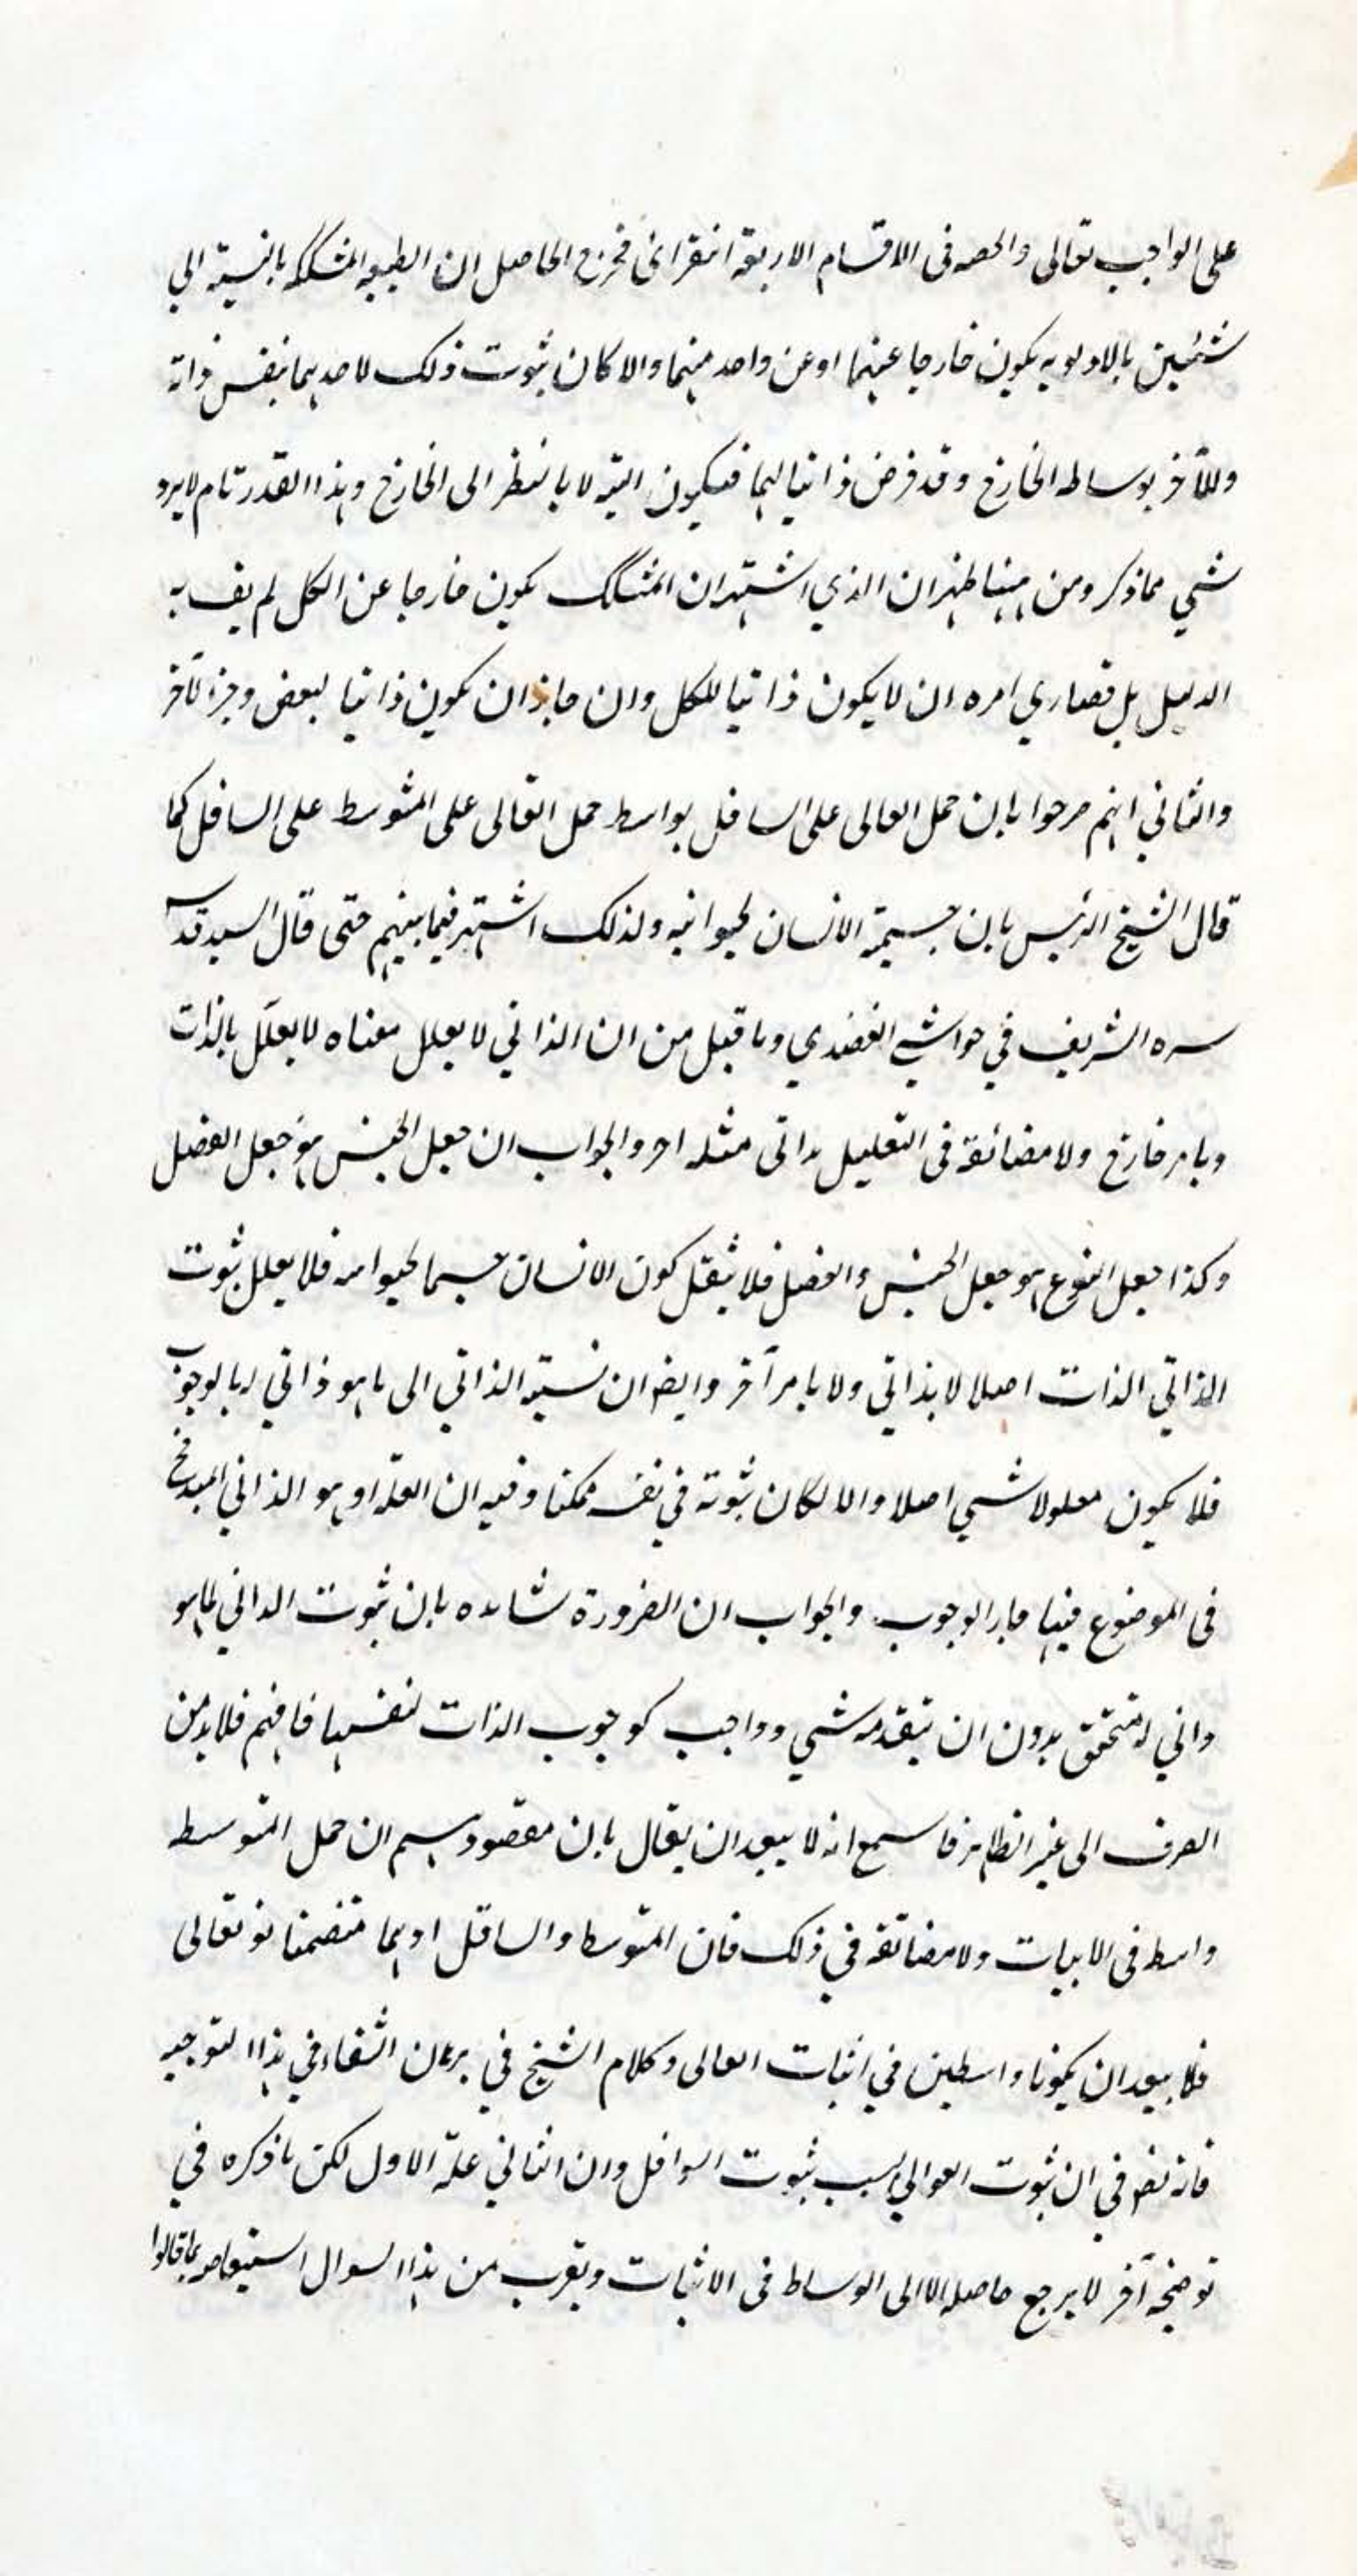 على الواجب تعالى والحصه فى الاقسام الاربعة استقرائى فخرج الحاصل ان الطبيعه المشككه بالنسبة الي
شئين بالاولويه يكون خارجا عنهما او عن واحد منهما والا كان ثبوت ذلك لاحدهما بنفس ذاته
وللآخر بوساطه الخارج وقد فرض ذاتيا لهما فيكون البته لا بالنظر الى الخارج وهذا القدر تام لا يرد
شي مما ذكر ومن هينا ظهر ان الذي اشتهر ان المشكك يكون خارجا عن الكل لم يف به
الدليل بل قصاري امره ان لا يكون ذاتيا للكل وان جاز ان يكون ذاتيا لبعض وجزء لآخر
والثاني انهم صرحوا بان حمل العالى على السافل بواسط حمل العالى على المتوسط على السافل كما
قال الشيخ الرئيس بان جسمية الانسان لحيوانيه ولذلك اشتهر فيما بينهم حتى قال السيد قدس
سره الشريف في حواشي العضدي وما قيل من ان الذاتي لا يعلل معناه لا يعلل بالذات
وبامر خارج ولا مضائقة فى التعليل بذاتى مثله اه والجواب ان جعل الجنس هو جعل الفصل
وكذا جعل النوع هو جعل الجنس والفصل فلا يعقل كون الانسان جسما لحيوانيه فلا يعلل ثبوت
الذاتي الذات اصلا لا بذاتي ولا بامر آخر وايضا ان نسبة الذاتي الى ما هو ذاتي له بالوجوب
فلا يكون معلولا شي اصلا والا لكان ثبوته في نفسه ممكنا وفيه ان العلة او هو الذاتي المبدء
فى الموضوع فيها جار الوجوب والجواب ان الضرورة شاهده بان ثبوت الذاتي لما هو
ذاتي له متحقق بدون ان يتقدمه شي وواجب كوجوب الذات لنفسها فافهم فلا بد من
الصرف الى غير الظاهر فاسمع انه لا يبعد ان يقال بان مقصودهم ان حمل المتوسط
واسط فى الاثبات ولا مضائقة في ذلك فان المتوسط والسافل اوبما متضمنا نو تعالى
فلا يبعد ان يكونا واسطين في اثبات العالى وكلام الشيخ في برهان الشفاء في هذا التوجيه
فانه نص في ان ثبوت العوالي بسبب ثبوت السوافل وان الثاني علة الاول لكن ما ذكره في
توضيحه آخر لا يرجع حاصله الا الى الوساط فى الاثبات ويقرب من هذا السوال بما قالوا